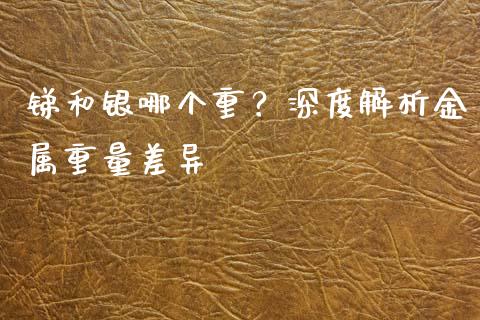 锑和银哪个重？深度解析金
属重量差异